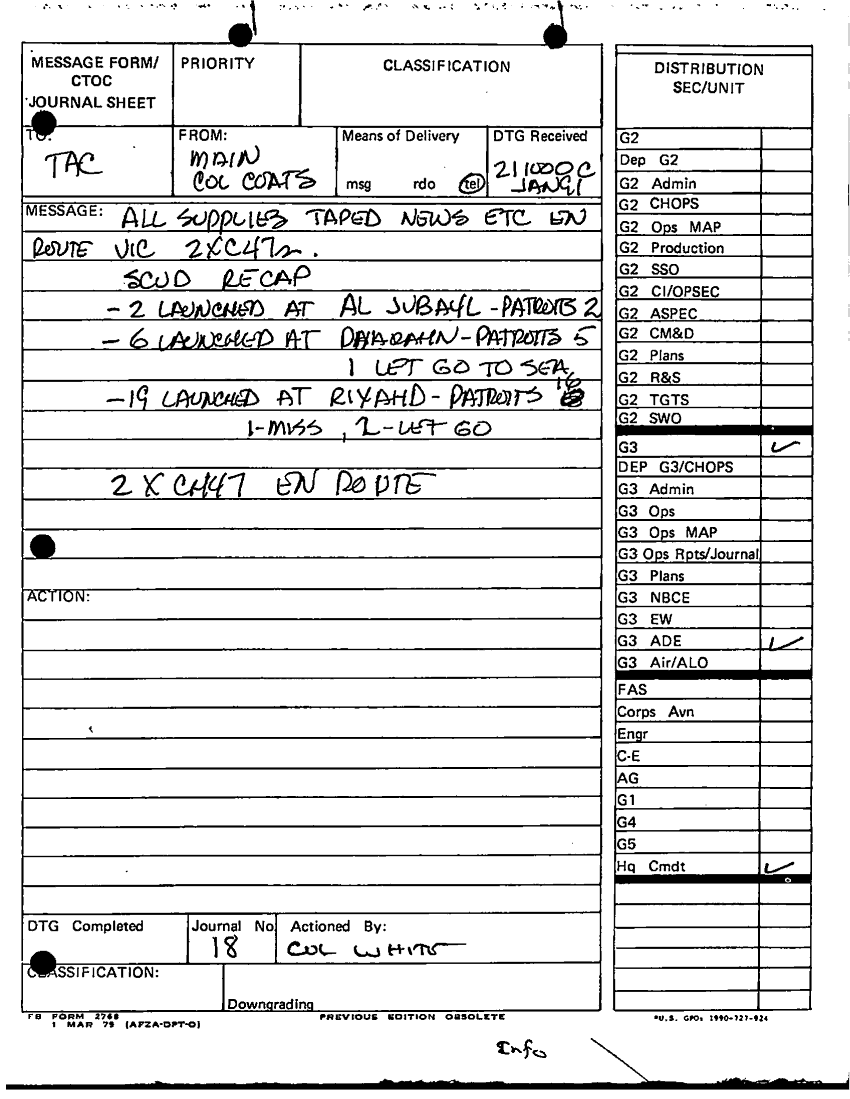 MESSAGE FORM/
CTOC
JOURNAL SHEET
PRIORITY
CLASSIFICATION
TO:
TAC
FROM:
MAIN
COL COATS
Means of Delivery
msg rdo tel
DTG Received
211000C
JAN91
MESSAGE: ALL SUPPLIES TAPED NEWS ETC EN
ROUTE VIC 2XC47s.
SCUD RECAP
- 2 LAUNCHED AT AL JUBAYL - PATRIOTS 2
- 6 LAUNCHED AT DAHRAHN - PATRIOTS 5
1 LET GO TO SEA
- 19 LAUNCHED AT RIYAHD - PATRIOTS 16
1-MISS, 2-LET GO
2 X CH47 EN ROUTE
ACTION:
DTG Completed
Journal No
18
Actioned By:
COL WHITE
CLASSIFICATION:
Downgrading
FB FORM 2768
1 MAR 79 (AFZA-DPT-O)
PREVIOUS EDITION OBSOLETE
DISTRIBUTION
SEC/UNIT
G2
Dep G2
G2 Admin
G2 CHOPS
G2 Ops MAP
G2 Production
G2 SSO
G2 CI/OPSEC
G2 ASPEC
G2 CM&D
G2 Plans
G2 R&S
G2 TGTS
G2 SWO
G3 ✓
DEP G3/CHOPS
G3 Admin
G3 Ops
G3 Ops MAP
G3 Ops Rpts/Journal
G3 Plans
G3 NBCE
G3 EW
G3 ADE ✓
G3 Air/ALO
FAS
Corps Avn
Engr
C-E
AG
G1
G4
G5
Hq Cmdt ✓
*U.S. GPO: 1990-727-924
Info